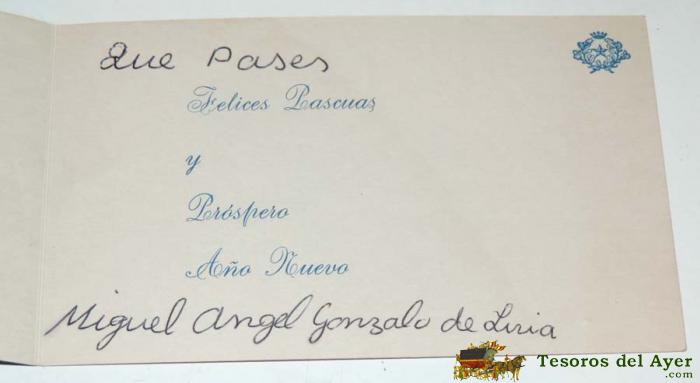 Que Pases
Felices Pascuas
y
Próspero
Año Nuevo
Miguel Angel Gonzalo de Liria
Tesoros del Ayer
.com